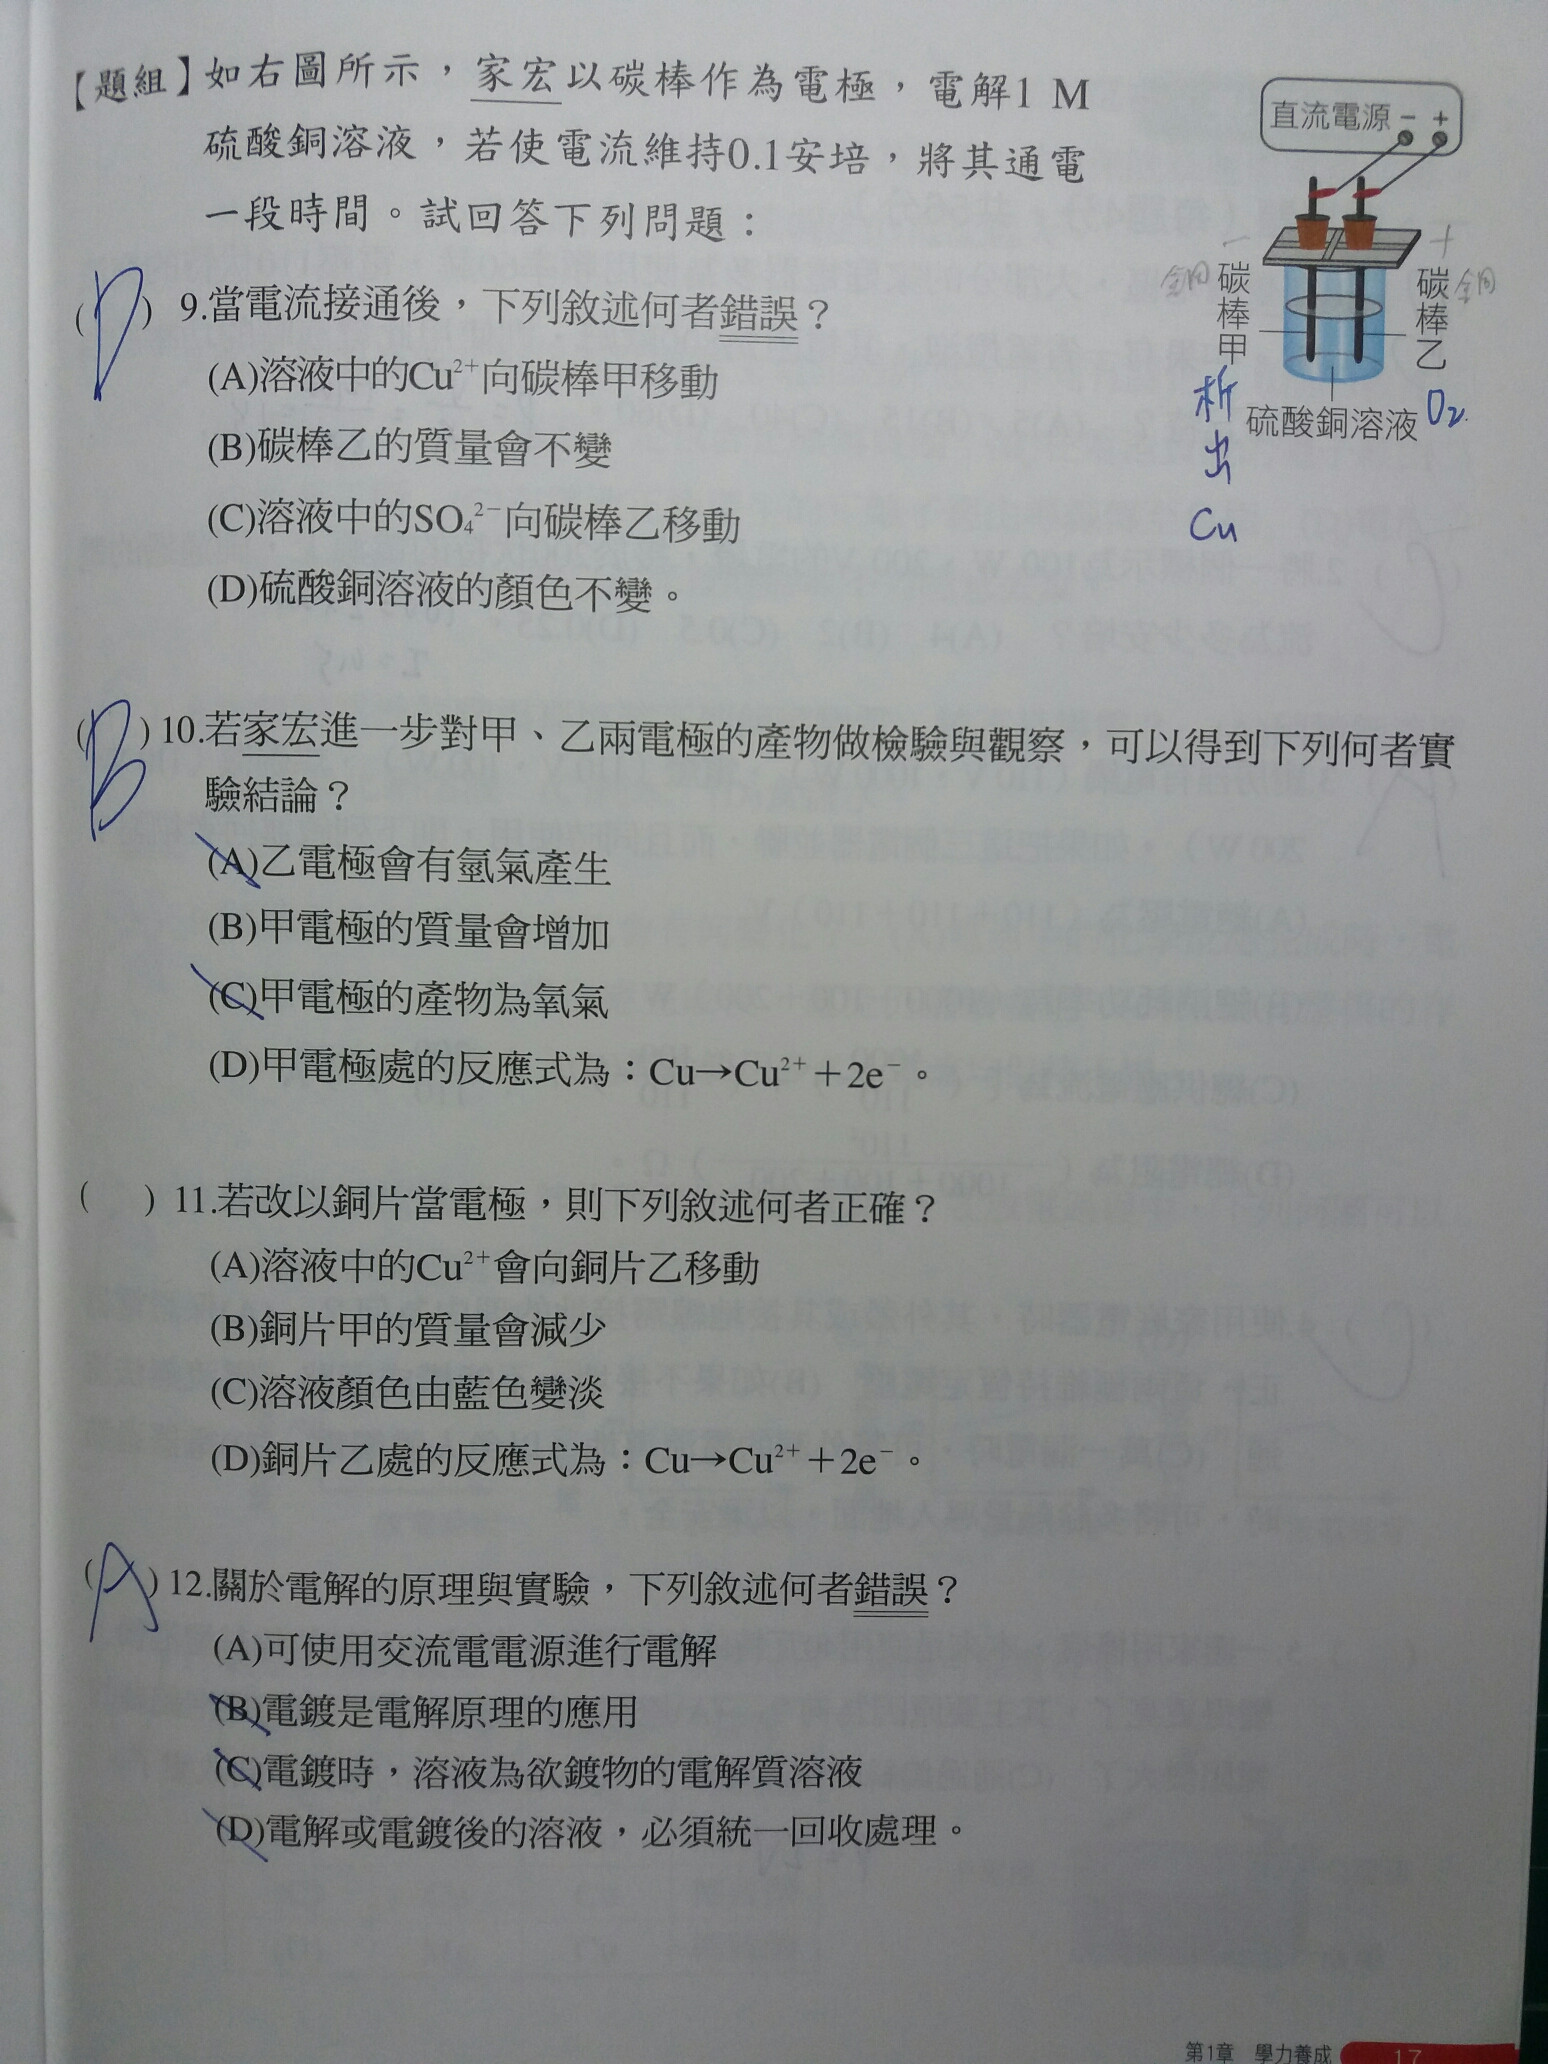 【題組】如右圖所示，家宏以碳棒作為電極，電解1 M
硫酸銅溶液，若使電流維持0.1安培，將其通電
一段時間。試回答下列問題：
直流電源 － ＋
－ ＋
銅 碳棒甲
碳棒乙 銅
析出Cu
硫酸銅溶液
O₂
(D) 9.當電流接通後，下列敘述何者錯誤？
(A)溶液中的Cu²⁺向碳棒甲移動
(B)碳棒乙的質量會不變
(C)溶液中的SO₄²⁻向碳棒乙移動
(D)硫酸銅溶液的顏色不變。
(B) 10.若家宏進一步對甲、乙兩電極的產物做檢驗與觀察，可以得到下列何者實
驗結論？
(A)乙電極會有氫氣產生
(B)甲電極的質量會增加
(C)甲電極的產物為氧氣
(D)甲電極處的反應式為：Cu→Cu²⁺＋2e⁻。
( ) 11.若改以銅片當電極，則下列敘述何者正確？
(A)溶液中的Cu²⁺會向銅片乙移動
(B)銅片甲的質量會減少
(C)溶液顏色由藍色變淡
(D)銅片乙處的反應式為：Cu→Cu²⁺＋2e⁻。
(A) 12.關於電解的原理與實驗，下列敘述何者錯誤？
(A)可使用交流電電源進行電解
(B)電鍍是電解原理的應用
(C)電鍍時，溶液為欲鍍物的電解質溶液
(D)電解或電鍍後的溶液，必須統一回收處理。
第1章 學力養成 17